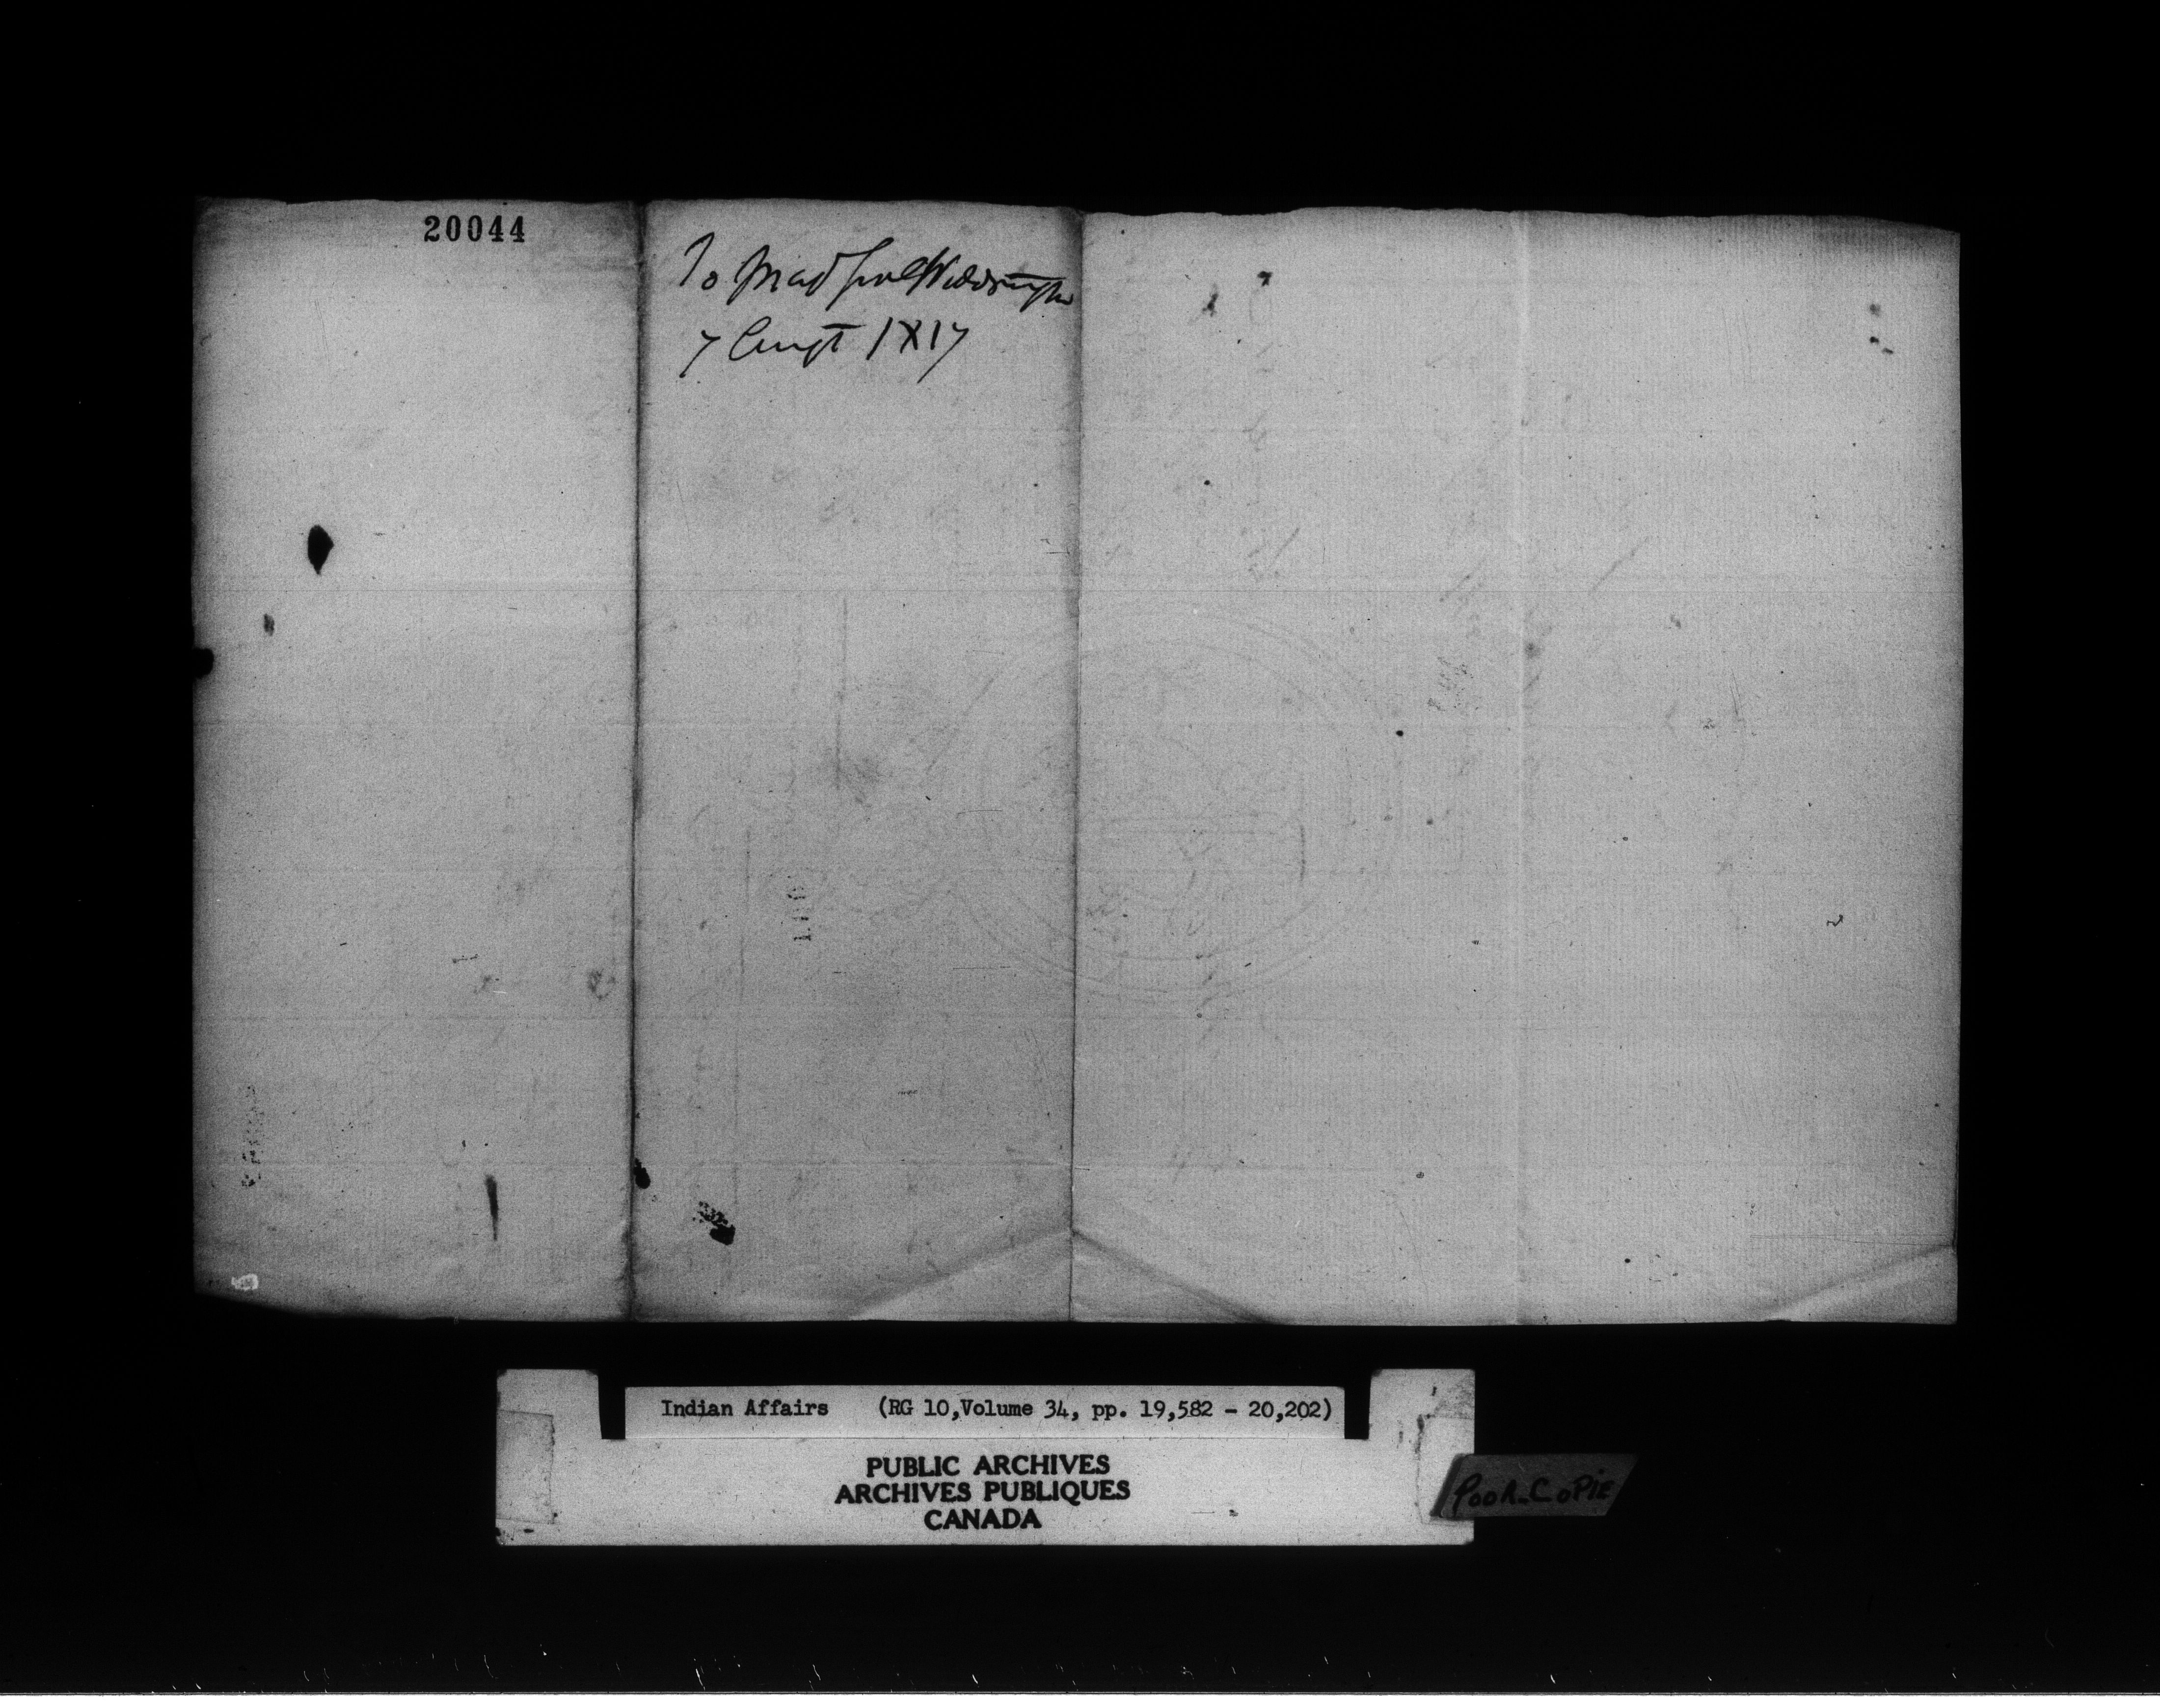 20044
To
7 Augt 1817
Indian Affairs (RG 10,Volume 34, pp. 19,582 - 20,202)
PUBLIC ARCHIVES
ARCHIVES PUBLIQUES
CANADA
POOR-COPIE